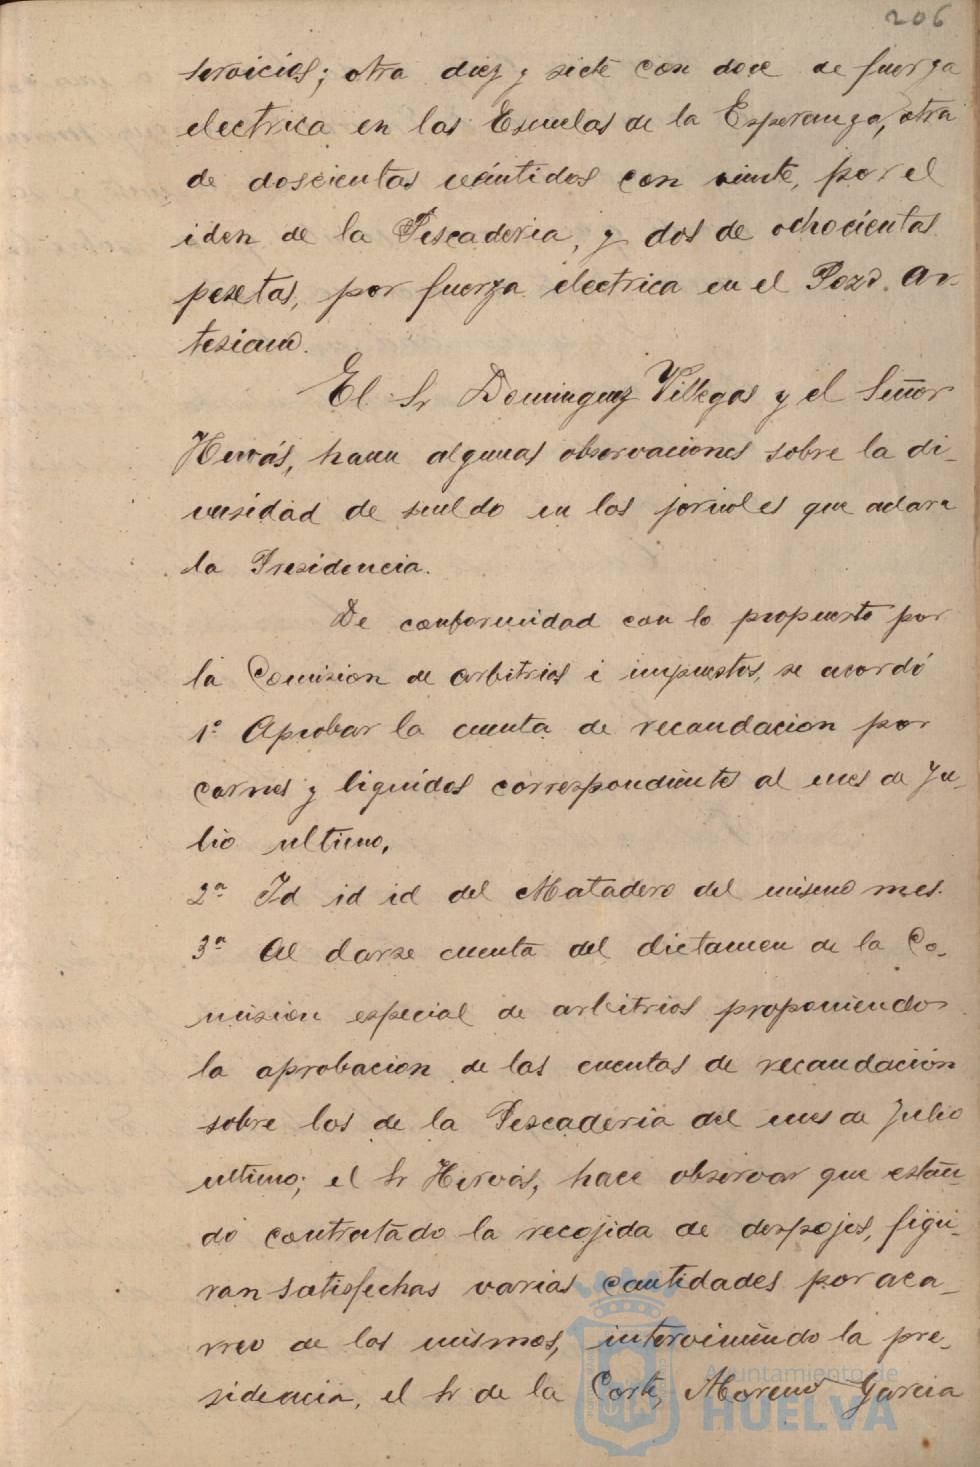 206
servicios; otra diez y siete con doce de fuerza
electrica en las Escuelas de la Esperanza, otra
de doscientas veintidos con veinte, por el
iden de la Pescaderia, y dos de ochocientas
pesetas, por fuerza electrica en el Pozo Ar-
tesiano.
El Sr Dominguez Villegas y el Señor
Hervás, hacen algunas observaciones sobre la di-
versidad de sueldo en los jornales que aclara
la Presidencia.
De conformidad con lo propuesto por
la Comision de arbitrios é impuestos, se acordó
1º Aprobar la cuenta de recaudacion por
carnes y liquidos correspondientes al mes de Ju-
lio ultimo.
2ª Id id id del Matadero del mismo mes.
3ª Al darse cuenta del dictamen de la Co-
mision especial de arbitrios proponiendo
la aprobacion de las cuentas de recaudación
sobre los de la Pescaderia del mes de Julio
ultimo; el Sr Hervás, hace observar que están-
do contratado la recojida de despojos, figu-
ran satisfechas varias cantidades por aca-
rreo de los mismos, interviniendo la pre-
sidencia, el Sr de la Corte, Moreno Garcia
Ayuntamiento de
HUELVA